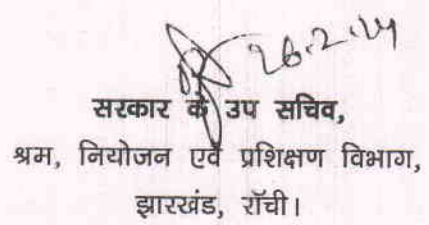 26.2.14
सरकार के उप सचिव,
श्रम, नियोजन एवं प्रशिक्षण विभाग,
झारखंड, राँची।